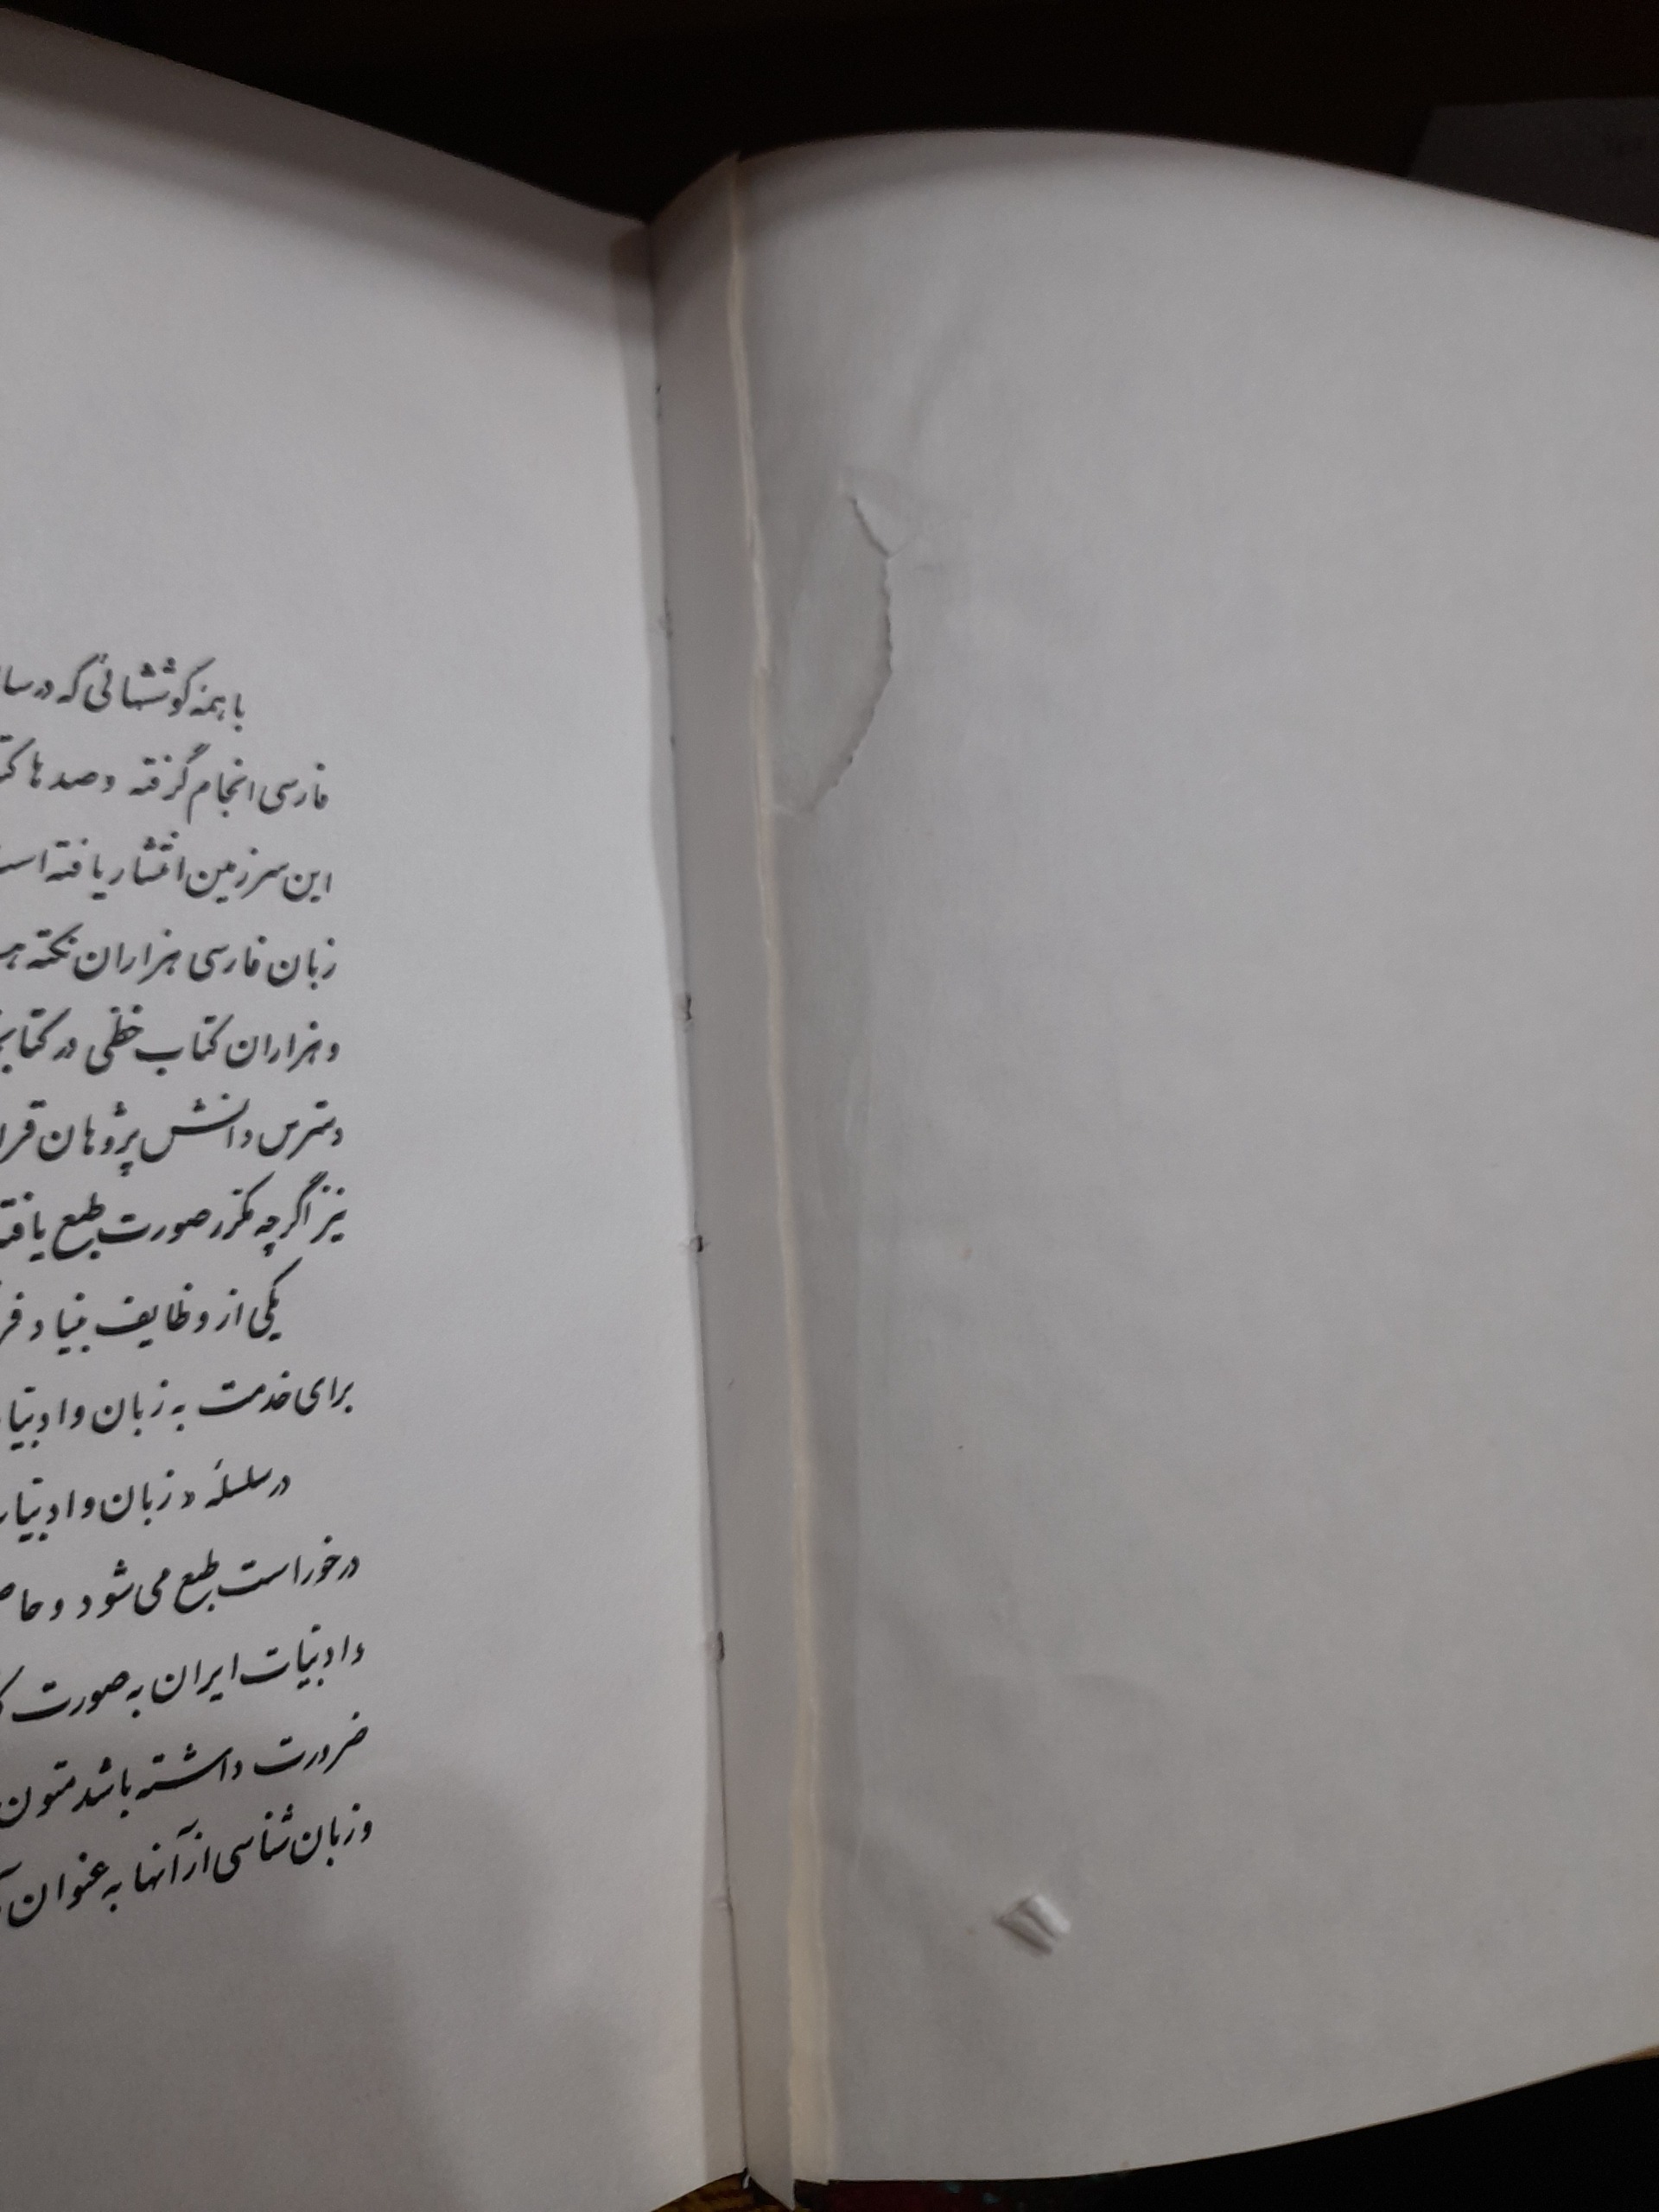 با همه کوششهائی که در سا
فارسی انجام گرفته و صدها
این سرزمین انتشار یافته است
زبان فارسی هزاران نکته
و هزاران کتاب خطی در
دسترس دانش پژوهان
نیز اگرچه مکرر صورت طبع یافته
یکی از وظایف بنیاد
برای خدمت به زبان و ادبیات
در سلسله «زبان و ادبیات
درخور است طبع می شود و
و ادبیات ایران به صورت
ضرورت داشته باشد متون
و زبان شناسی از آنها به عنوان